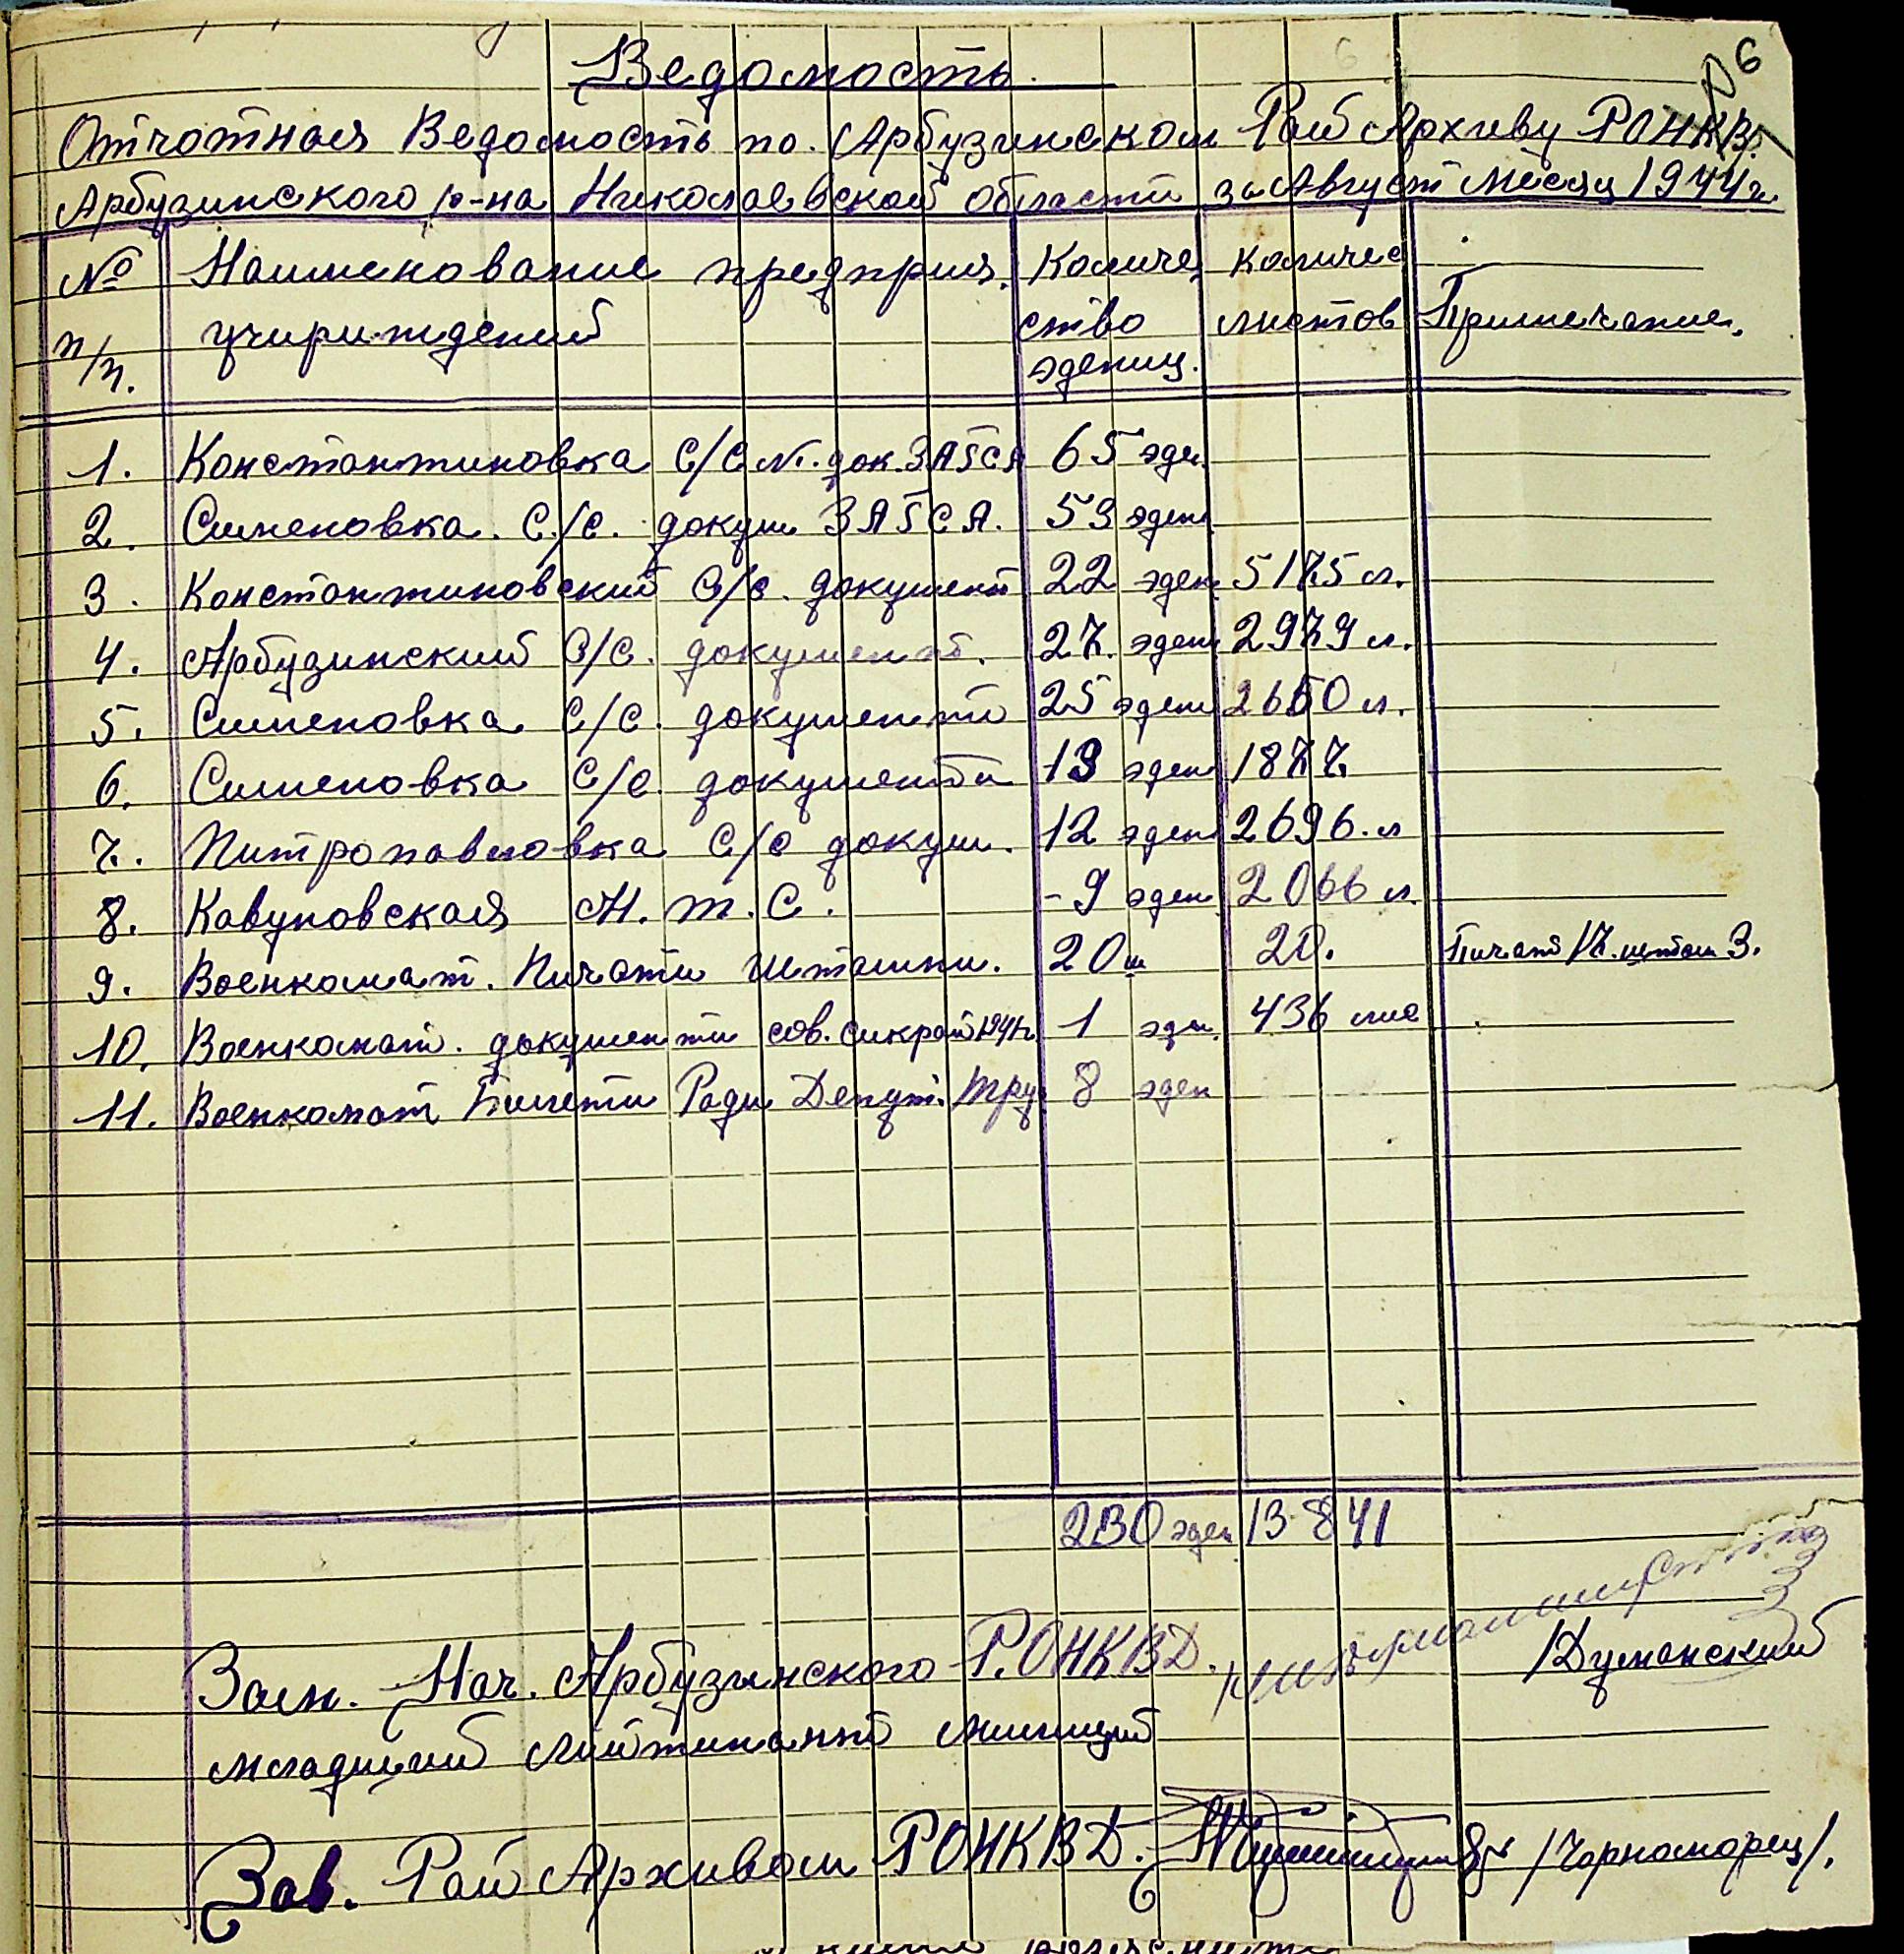 6
Ведомость
Отчотная Ведомость по. Арбузинском Рай Архиву РОНКВД.
Арбузинского р-на Николаевской области за Август месяц 1944 г.
№ п/п. Наименование предприя. учириждений Количе ство эдениц. количес листов Примечание.
1. Константиновка С/С N. док. ЗАГСА 65 эден
2. Сименовка. С/С. докум ЗАГСА. 53 эден
3. Константиновский С/С. документ 22 эден. 5175 л.
4. Арбузинский С/С. документ. 27. эден 2979 л.
5. Сименовка С/С. документи 25 эден 2650 л.
6. Сименовка С/С. документи 13 эден 1877.
7. Питропавловка С/С докум. 12 эден 2696. л
8. Кавуновская М. Т. С. - 9 эден 2066 л.
9. Военкомат. Пичати Штампи. 20 ш 20. Пичат 17. штам 3.
10. Военкомат. документи сов. сикрет 1941г. 1 эден. 436 лис
11. Военкомат Билети Ради Депут. Тру 8 эден
230 эден 13841
Зам. Нач. Арбузинского Р.ОНКВД. /Думанский
младший лийтинант милиций
Зав. Рай Архивом РОНКВД. /Чорноморец/.